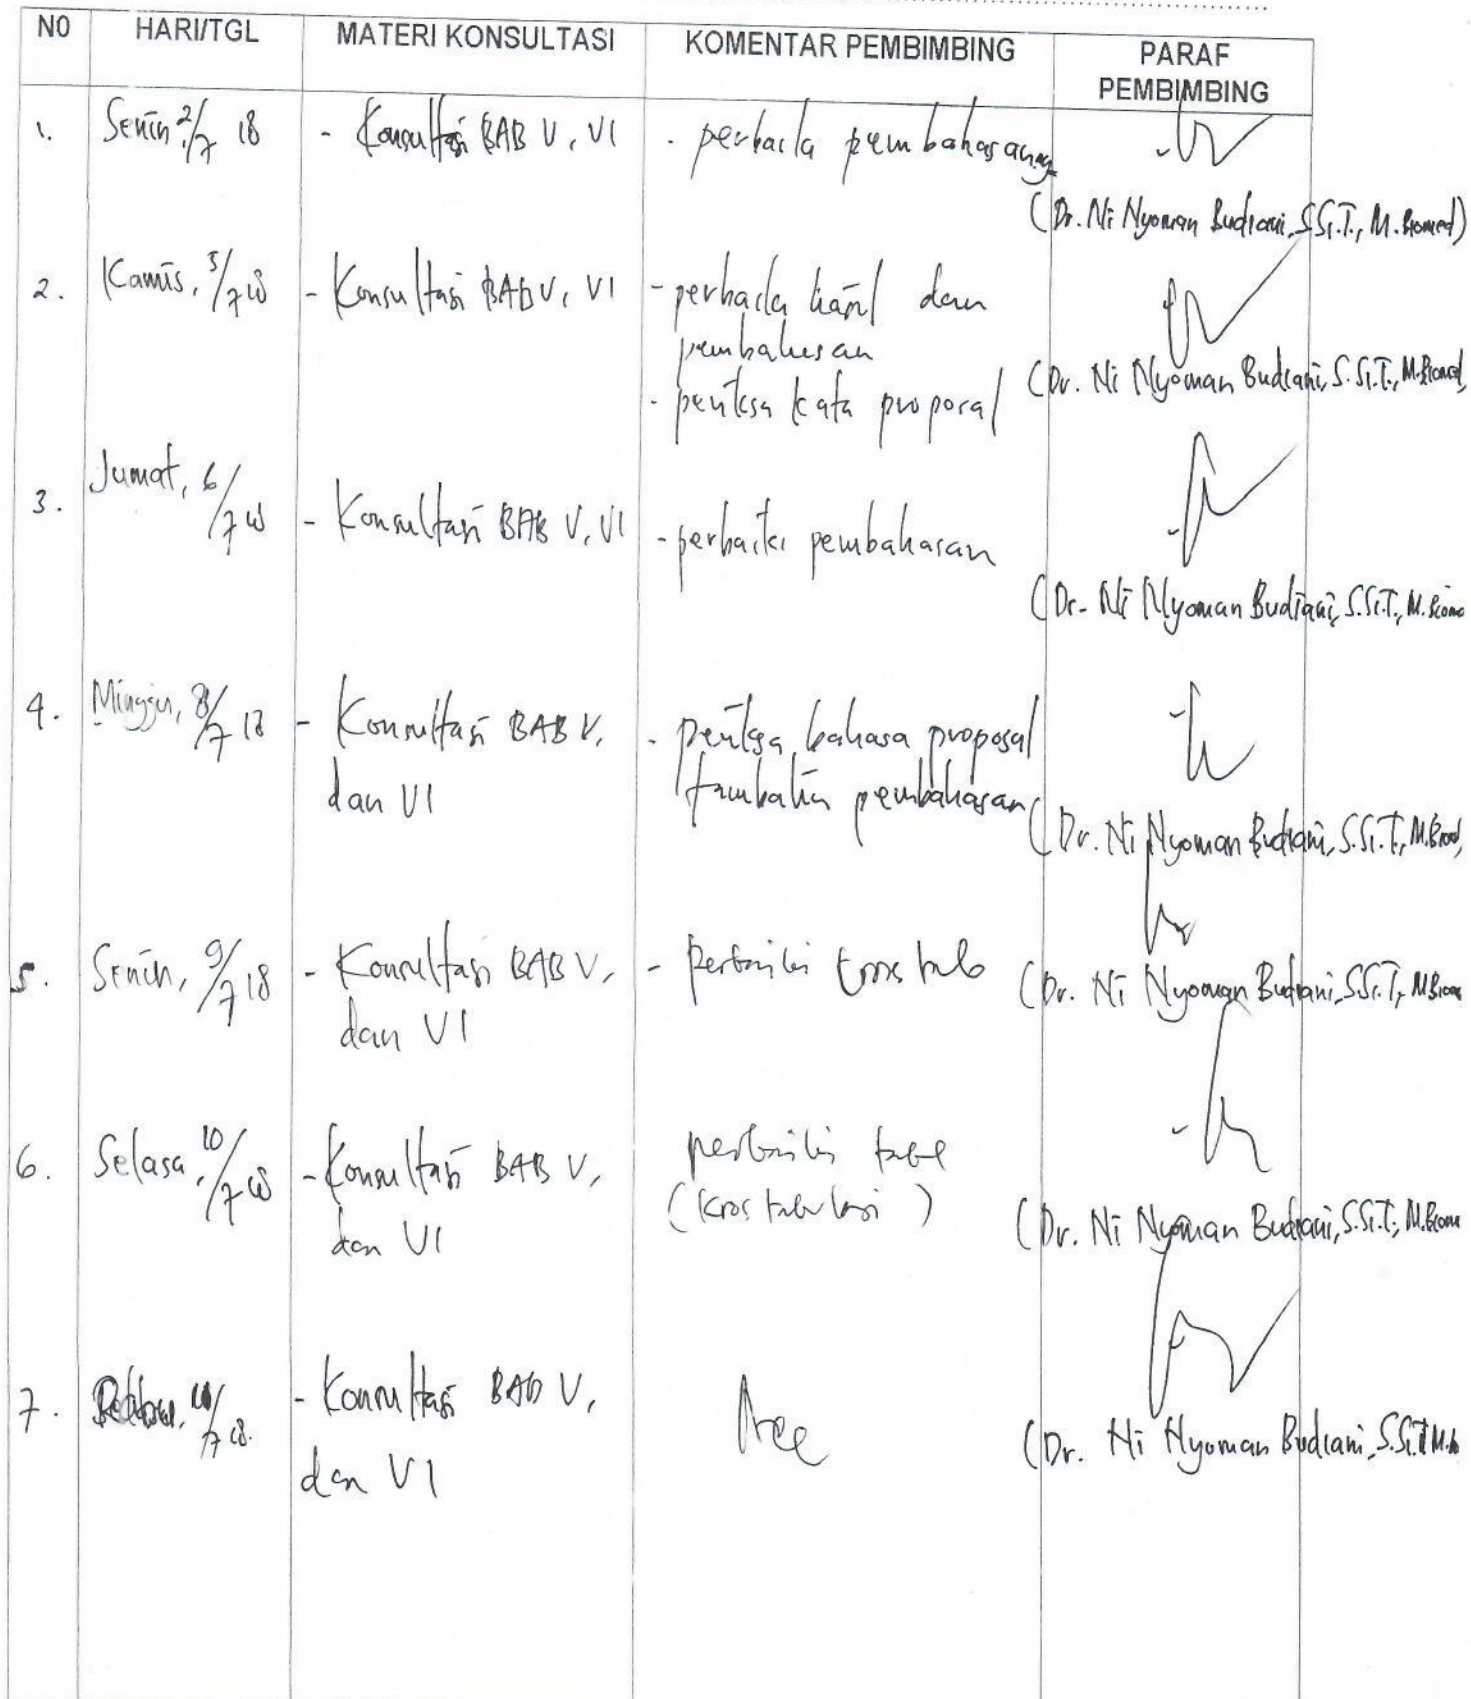 NO HARI/TGL MATERI KONSULTASI KOMENTAR PEMBIMBING PARAF
PEMBIMBING
1. Senin 2/7 18 - Konsultasi BAB V, VI - perbaiki pembahasannya
(Dr. Ni Nyoman Budiani, S.Si.T., M.Biomed)
2. Kamis, 5/7 18 - Konsultasi BAB V, VI - perbaiki hasil dan
pembahasan
- periksa kata proposal
(Dr. Ni Nyoman Budiani, S.Si.T., M.Biomed,
3. Jumat, 6/7 18 - Konsultasi BAB V, VI - perbaiki pembahasan
(Dr. Ni Nyoman Budiani, S.Si.T., M.Biome
4. Minggu, 8/7 18 - Konsultasi BAB V, - periksa bahasa proposal
dan VI pembahasan
(Dr. Ni Nyoman Budiani, S.Si.T, M.Biomed,
5. Senin, 9/7 18 - Konsultasi BAB V, - perbaiki
dan VI
(Dr. Ni Nyoman Budiani, S.Si.T, M.Biome
6. Selasa, 10/7 18 - Konsultasi BAB V, perbaiki tabel
dan VI (kros tabulasi)
(Dr. Ni Nyoman Budiani, S.Si.T, M.Biome
7. 11/7 18. - Konsultasi BAB V, Acc
dan VI
(Dr. Ni Nyoman Budiani, S.Si.T M.b